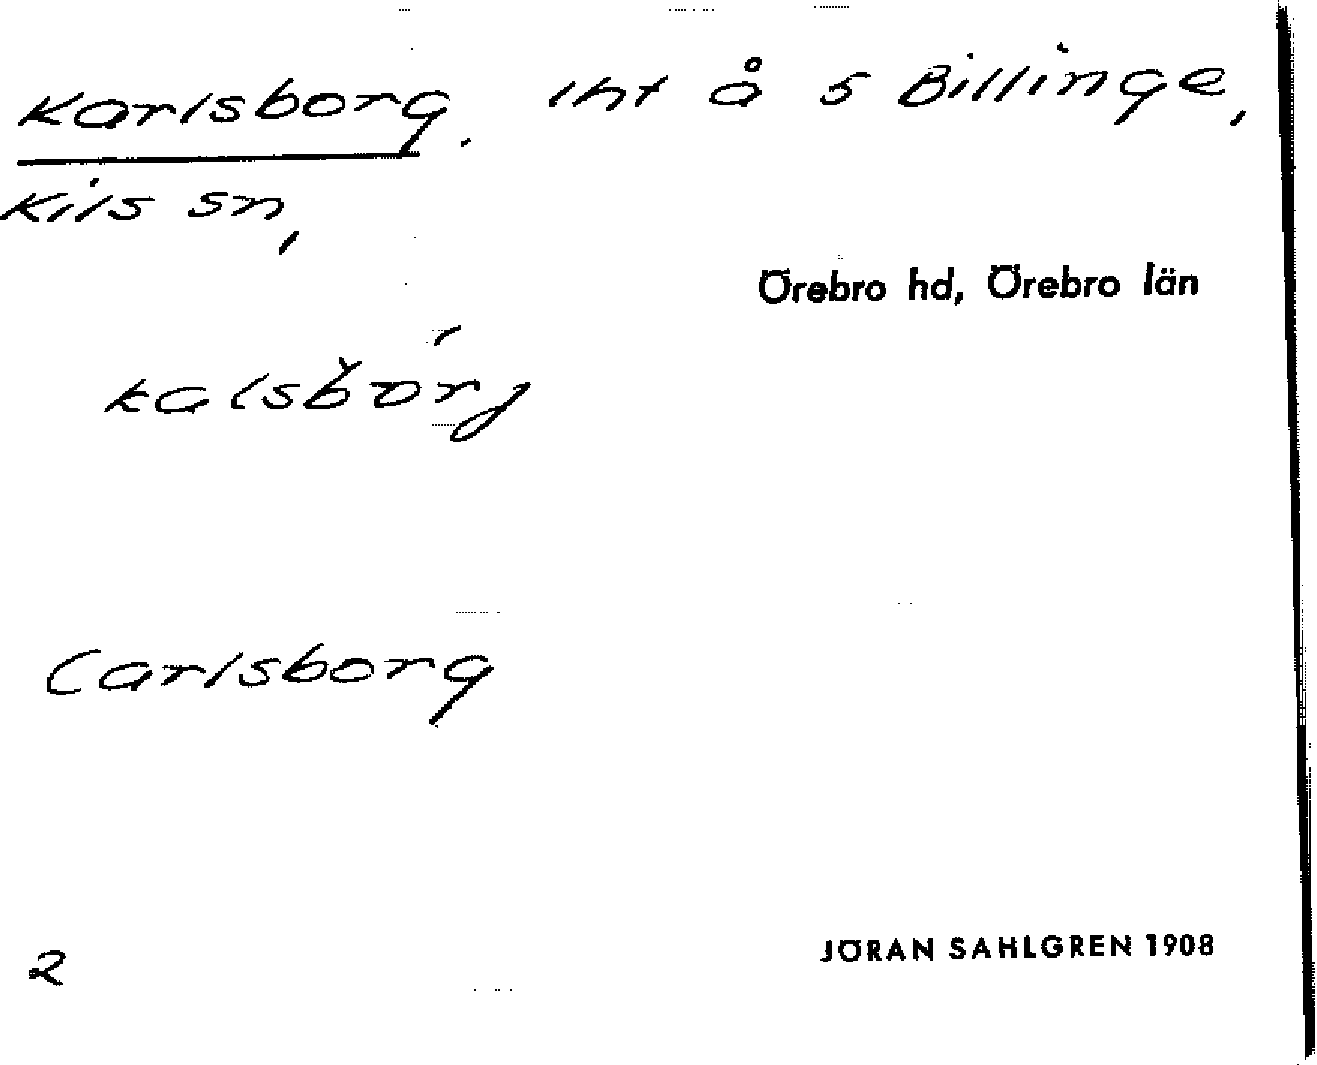 Karlsborg. lht å S Billinge,
Kils sn,
Örebro hd, Örebro län
kalsbòrj
Carlsborg
2
JÖRAN SAHLGREN 1908